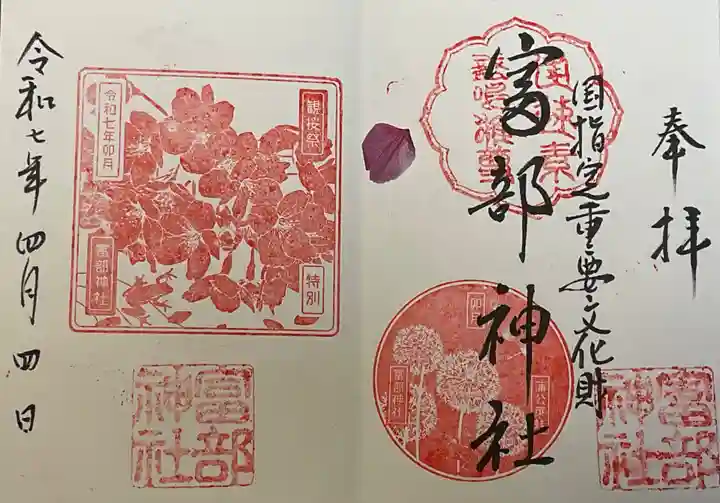 奉拝
国指定重要文化財
富部神社
卯月
蒲公英
富部神社
富部神社
観桜祭
特別
令和七年卯月
富部神社
富部神社
令和七年四月四日